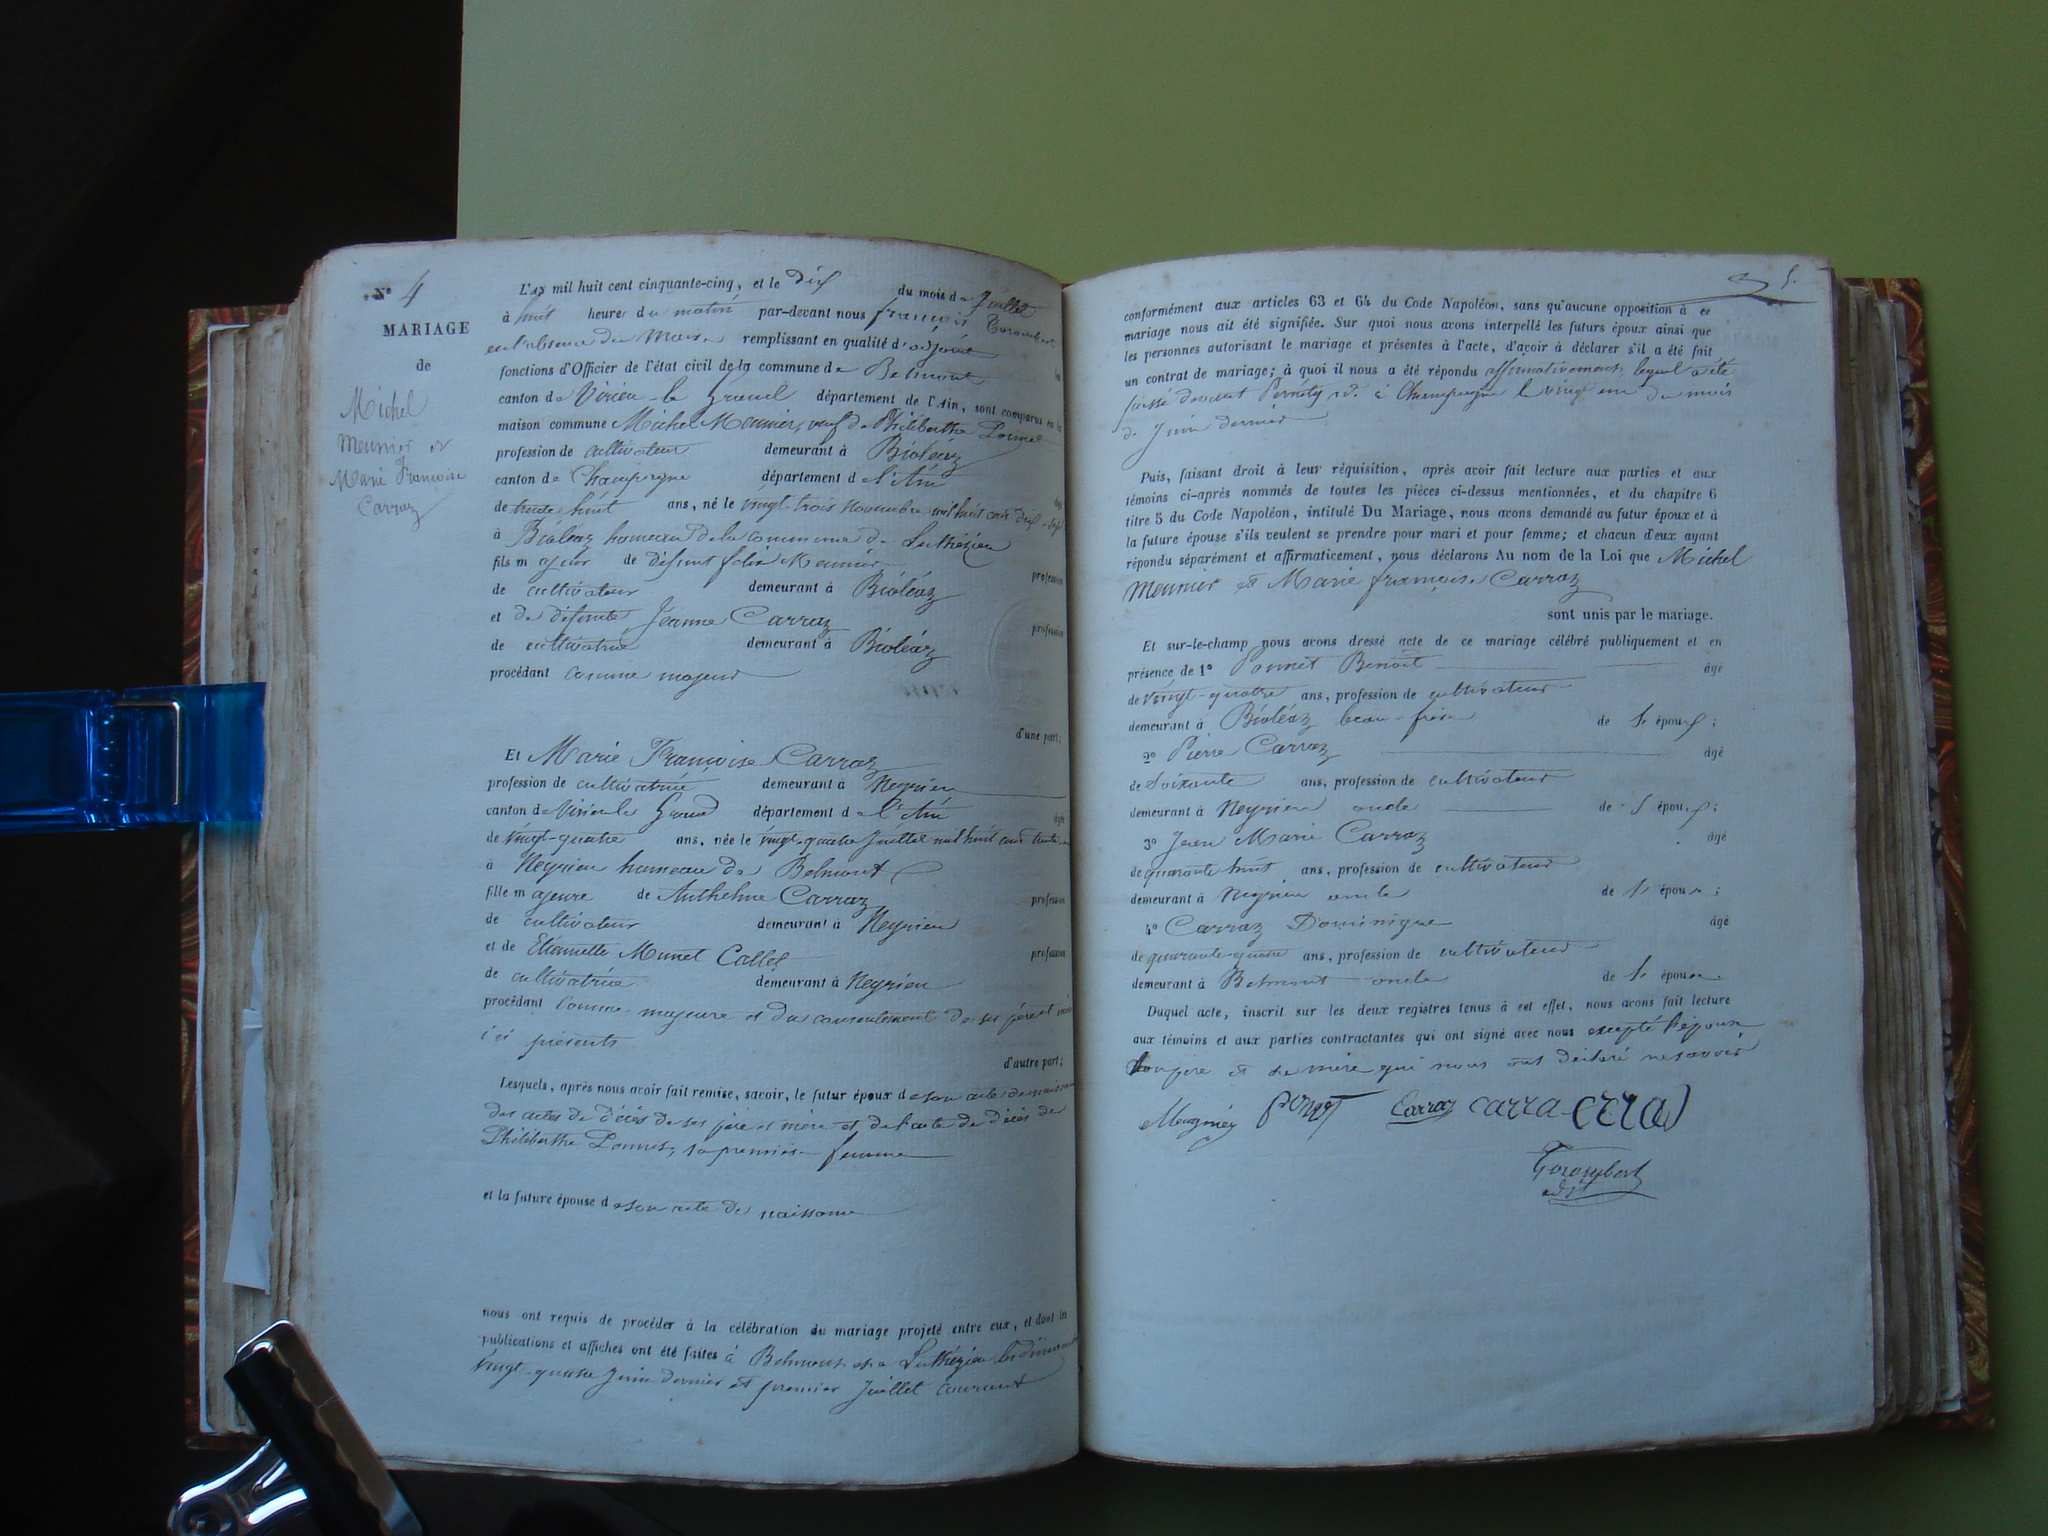 N° 4
MARIAGE
de
Michel
Meunier et
Marie Françoise
Carraz
L'AN mil huit cent cinquante-cinq, et le dix du mois de Juillet
à huit heures du matin par-devant nous françois Torombert
en l'absence du Maire remplissant en qualité d'adjoint les
fonctions d'Officier de l'état civil de la commune de Belmont
canton de Virieu-le Grand département de l'Ain, sont comparus en la
maison commune Michel Meunier, veuf de Philiberthe Ponnet
profession de cultivateur demeurant à Bioléaz
canton de Champagne département de l'Ain âgé
de trente huit ans, né le vingt-trois novembre mil huit cent dix-sept
à Bioléaz hameau de la commune de Luthézieu
fils majeur de défunt félix Meunier profession
de cultivateur demeurant à Bioléaz
et de défunte Jeanne Carraz profession
de cultivatrice demeurant à Bioléaz
procédant comme majeur
d'une part;
Et Marie Françoise Carraz
profession de cultivatrice demeurant à Neyrieu
canton de Virieu le Grand département de l'Ain âgée
de vingt-quatre ans, née le vingt-quatre Juillet mil huit cent trente
à Neyrieu hameau de Belmont
fille majeure de Anthelme Carraz profession
de cultivateur demeurant à Neyrieu
et de Etiennette Munet Callet profession
de cultivatrice demeurant à Neyrieu
procédant comme majeure et du consentement de ses père et mère
ici présents
d'autre part;
Lesquels, après nous avoir fait remise, savoir, le futur époux de son acte de naissance
des actes de décès de ses père et mère et de l'acte de décès de
Philiberthe Ponnet, sa première femme
et la future épouse de son acte de naissance
nous ont requis de procéder à la célébration du mariage projeté entre eux, et dont les
publications et affiches ont été faites à Belmont et à Luthézieu les dimanches
vingt-quatre Juin dernier et premier Juillet courant
5.
conformément aux articles 63 et 64 du Code Napoléon, sans qu'aucune opposition à ce
mariage nous ait été signifiée. Sur quoi nous avons interpellé les futurs époux ainsi que
les personnes autorisant le mariage et présentes à l'acte, d'avoir à déclarer s'il a été fait
un contrat de mariage; à quoi il nous a été répondu affirmativement, lequel a été
passé devant à Champagne le vingt un du mois
de Juin dernier
Puis, faisant droit à leur réquisition, après avoir fait lecture aux parties et aux
témoins ci-après nommés de toutes les pièces ci-dessus mentionnées, et du chapitre 6
titre 5 du Code Napoléon, intitulé Du Mariage, nous avons demandé au futur époux et à
la future épouse s'ils veulent se prendre pour mari et pour femme; et chacun d'eux ayant
répondu séparément et affirmativement, nous déclarons Au nom de la Loi que Michel
Meunier et Marie françoise Carraz
sont unis par le mariage.
Et sur-le-champ nous avons dressé acte de ce mariage célébré publiquement et en
présence de 1° Ponnet Benoit âgé
de vingt-quatre ans, profession de cultivateur
demeurant à Bioléaz beau-frère de l'époux;
2° Pierre Carraz âgé
de Soixante ans, profession de cultivateur
demeurant à Neyrieu oncle de l'époux;
3° Jean Marie Carraz âgé
de quarante huit ans, profession de cultivateur
demeurant à Neyrieu oncle de l'épouse;
4° Carraz Dominique âgé
de quarante-quatre ans, profession de cultivateur
demeurant à Belmont oncle de l'épouse
Duquel acte, inscrit sur les deux registres tenus à cet effet, nous avons fait lecture
aux témoins et aux parties contractantes qui ont signé avec nous excepté l'épouse
son père et sa mère qui nous ont déclaré ne savoir
Meugnier ponnet Carraz carra
Torombert
adjt